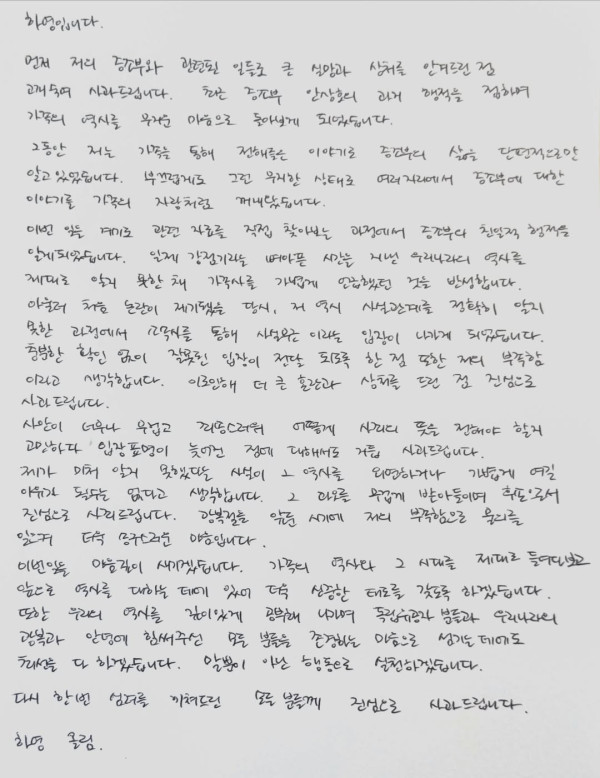 하영입니다.
먼저 저의 증조부와 관련된 일들로 큰 실망과 상처를 안겨드린 점
고개숙여 사과드립니다. 최근 증조부 안상호의 과거 행적을 접하며
가족의 역사를 무거운 마음으로 돌아보게 되었습니다.
그동안 저는 가족을 통해 전해들은 이야기로 증조부의 삶을 단편적으로만
알고 있었습니다. 부끄럽게도 그런 무지한 상태로 여러 자리에서 증조부에 대한
이야기를 가족의 자랑처럼 꺼내왔습니다.
이번 일을 계기로 관련 자료를 직접 찾아보는 과정에서 증조부의 친일적 행적을
알게되었습니다. 일제 강점기라는 뼈아픈 시간을 지낸 우리나라의 역사를
제대로 알지 못한 채 가족사를 가볍게 언급했던 것을 반성합니다.
아울러 처음 논란이 제기됐을 당시, 저 역시 사실관계를 정확히 알지
못한 과정에서 소속사를 통해 사실무근 이라는 입장이 나가게 되었습니다.
충분한 확인 없이 잘못된 입장이 전달 되도록 한 점 또한 저의 부족함
이라고 생각합니다. 이로인해 더 큰 혼란과 상처를 드린 점 진심으로
사과드립니다.
사안이 너무나 무겁고 죄송스러워 어떻게 사죄의 뜻을 전해야 할지
고민하다 입장표명이 늦어진 점에 대해서도 거듭 사과드립니다.
제가 미처 알지 못했다는 사실이 그 역사를 외면하거나 가볍게 여길
이유가 될수는 없다고 생각합니다. 그 과오를 무겁게 받아들이며 후손으로서
진심으로 사죄드립니다. 광복절을 앞둔 시기에 저의 부족함으로 물의를
일으켜 더욱 송구스러운 마음입니다.
이번일을 마음깊이 새기겠습니다. 가족의 역사와 그 시대를 제대로 들여다보고
앞으로 역사를 대하는 데에 있어 더욱 신중한 태도를 갖도록 하겠습니다.
또한 우리의 역사를 깊이있게 공부해 나가며 독립유공자 분들과 우리나라의
광복과 안녕에 힘써주신 모든 분들을 존경하는 마음으로 섬기는 데에도
최선을 다 하겠습니다. 말뿐이 아닌 행동으로 실천하겠습니다.
다시 한번 심려를 끼쳐드린 모든 분들께 진심으로 사과드립니다.
하영 올림.